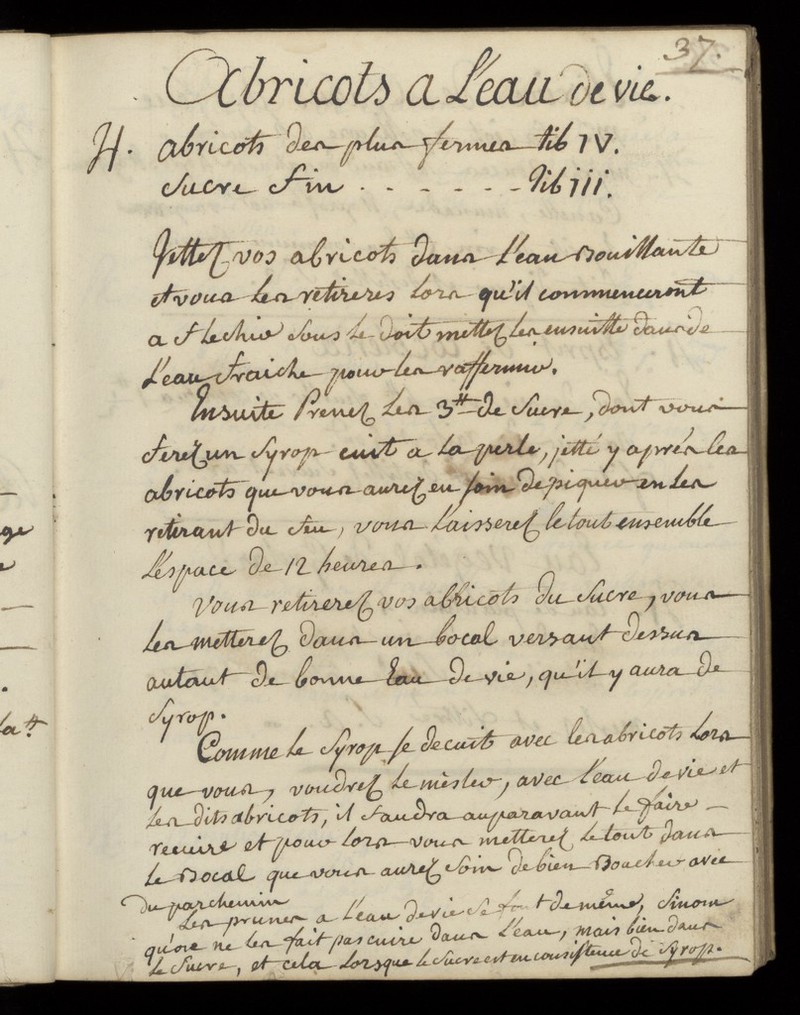 37.
Abricots a L'eau de vie.
♃. abricots des plus fermes lib IV.
Sucre fin . - - - - - lib iii.
Jettez vos abricots dans L'eau Bouillante
et vous les retireres lors qu'il commenceront
a flechir sous le doit mettez les ensuitte dans de
L'eau fraiche pour les raffermir.
Ensuite Prenez les 3 ₶ de Sucre, dont vous
ferez un Syrop cuit a la perle, jetté y aprés les
abricots que vous aurez eu soin de piquer en les
retirant du feu, vous laisserez le tout ensemble
L'espace de 12 heures.
vous retirerez vos abricots du Sucre, vous
les metterez dans un bocal versant dessus
autant de bonne Eau de vie, qu'il y aura de
Syrop.
Comme le Syrop se decuit avec les abricots lors
que vous, voudrez le mèsler, avec l'eau de vie et
les dits abricots, il faudra auparavant le faire –
recuire et pour lors vous metterez le tout dans
le Bocal que vous aurez soin de bien Boucher avec
du parchemin
Les prunes a l'eau de vie se font de même, Sinom
qu'one ne les fait pas cuire dans L'eau, mais bien dans
le Sucre, et cela lorsque le Sucre est en consistence de Syrop.
ge
la ₶